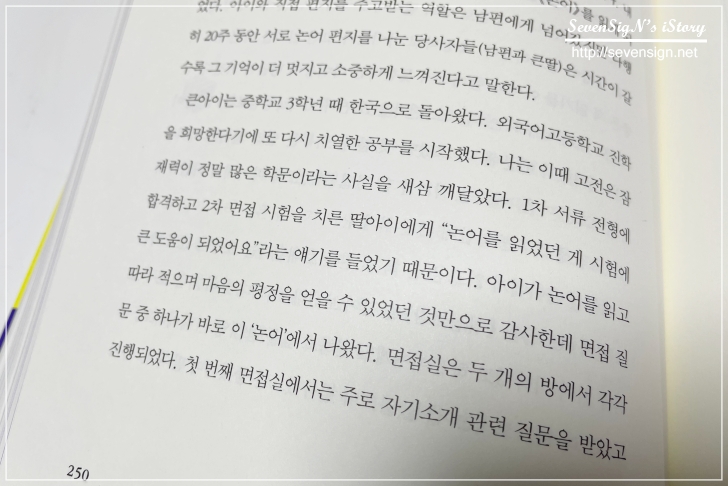 《논어》를 읽
었다. 아이와 직접 편지를 주고받는 역할은 남편에게 넘어
히 20주 동안 서로 논어 편지를 나눈 당사자들(남편과 큰딸)은 시간이 갈
수록 그 기억이 더 멋지고 소중하게 느껴진다고 말한다.
큰아이는 중학교 3학년 때 한국으로 돌아왔다. 외국어고등학교 진학
을 희망한다기에 또 다시 치열한 공부를 시작했다. 나는 이때 고전은 잠
재력이 정말 많은 학문이라는 사실을 새삼 깨달았다. 1차 서류 전형에
합격하고 2차 면접 시험을 치른 딸아이에게 “논어를 읽었던 게 시험에
큰 도움이 되었어요”라는 얘기를 들었기 때문이다. 아이가 논어를 읽고
따라 적으며 마음의 평정을 얻을 수 있었던 것만으로 감사한데 면접 질
문 중 하나가 바로 이 ‘논어’에서 나왔다. 면접실은 두 개의 방에서 각각
진행되었다. 첫 번째 면접실에서는 주로 자기소개 관련 질문을 받았고
250
SevenSigN's iStory
http://sevensign.net